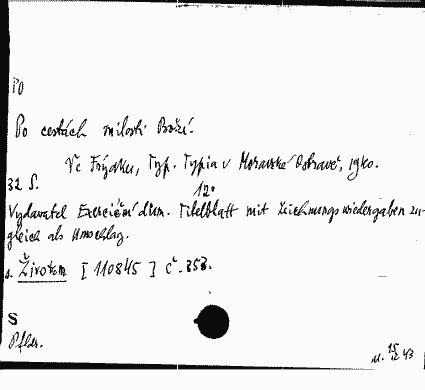 Po
Po cestách milosti Boží.
Ve Frýdku, Typ. Typia v Moravské Ostravě, 1940.
32 S. 12°
Vydavatel Exerciční dům. Titelblatt mit Zeichnungswiedergaben zu-
gleich als Umschlag.
s. Životem [110845] č. 353.
S
Pflar.
15
43